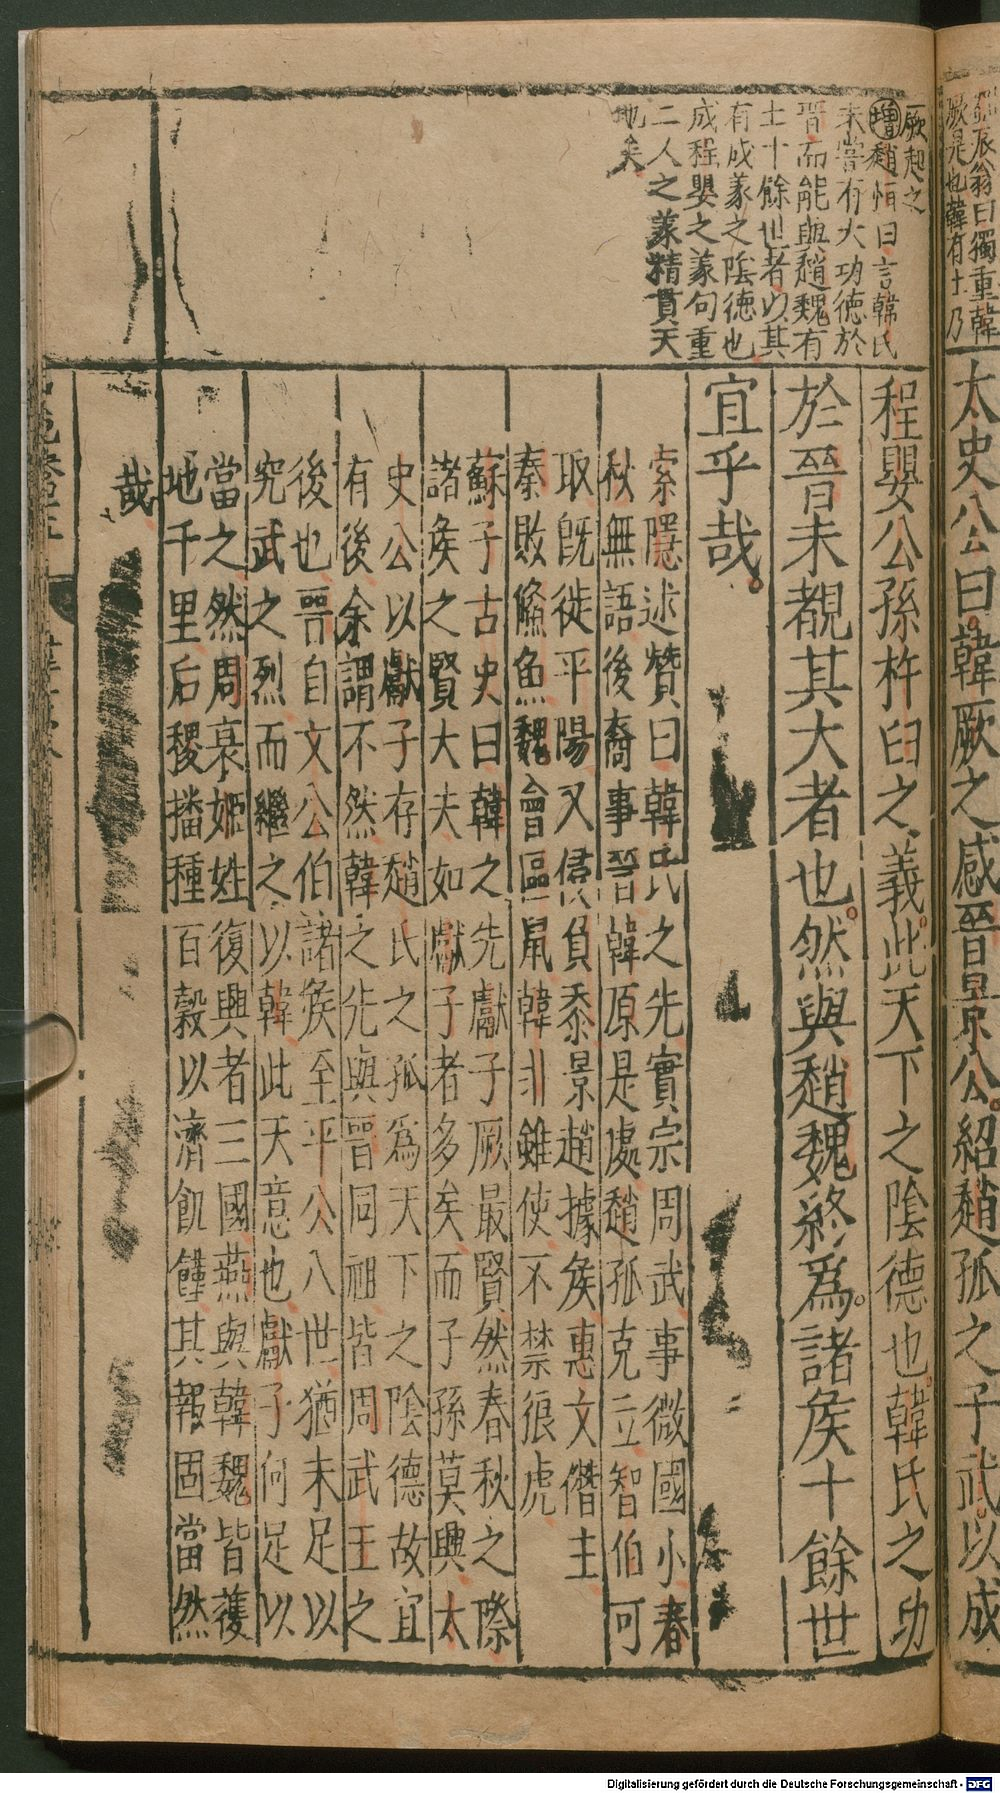 孫辰翁曰獨重韓
厥是也韓有士乃
厥起之
增趙恒曰言韓氏
未嘗有大功德於
晉而能與趙魏有
土十餘世者以其
有成義之陰德也
成程嬰之義句重
二人之義精貫天
地矣
太史公曰韓厥之感晉景公紹趙孤之子武以成
程嬰公孫杵臼之義此天下之陰德也韓氏之功
於晉未覩其大者也然與趙魏終爲諸矦十餘世
宜乎哉
索隱述贊曰韓氏之先實宗周武事微國小春
秋無語後裔事晉韓原是處趙孤克立智伯可
取旣徙平陽又侵負黍景趙據矦惠文僭主
秦敗脩魚魏會區鼠韓非雖使不禁狼虎
蘇子古史曰韓之先獻子厥最賢然春秋之際
諸矦之賢大夫如獻子者多矣而子孫莫興太
史公以獻子存趙氏之孤爲天下之陰德故宜
有後余謂不然韓之先與晉同祖皆周武王之
後也晉自文公伯諸矦至平公八世猶未足以
究武之烈而繼之以韓此天意也獻子何足以
當之然周衰姬姓復興者三國燕與韓魏皆𫉬
地千里后稷播種百穀以濟飢饉其報固當然
哉
Digitalisierung gefördert durch die Deutsche Forschungsgemeinschaft - DFG